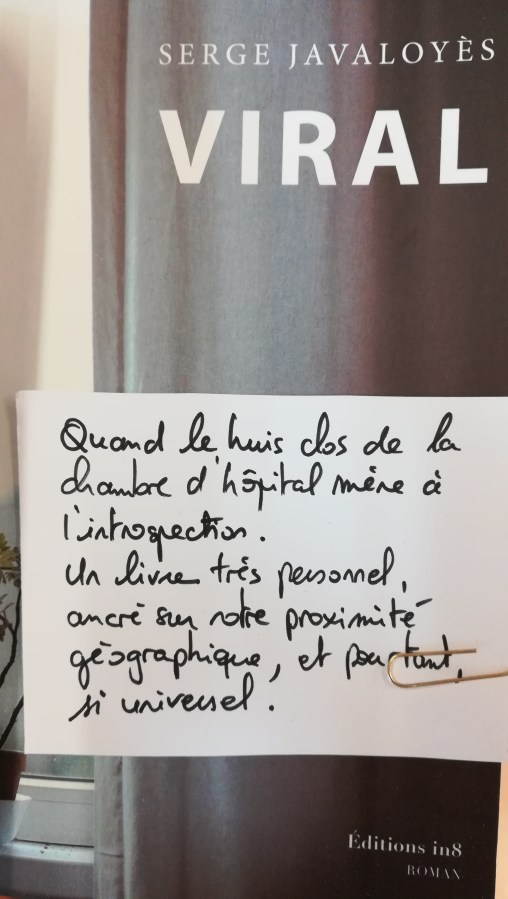 SERGE JAVALOYÈS
VIRAL
Quand le huis clos de la
chambre d'hôpital mène à
l'introspection.
Un livre très personnel,
ancré sur notre proximité
géographique, et pourtant,
si universel.
Éditions in8
ROMAN